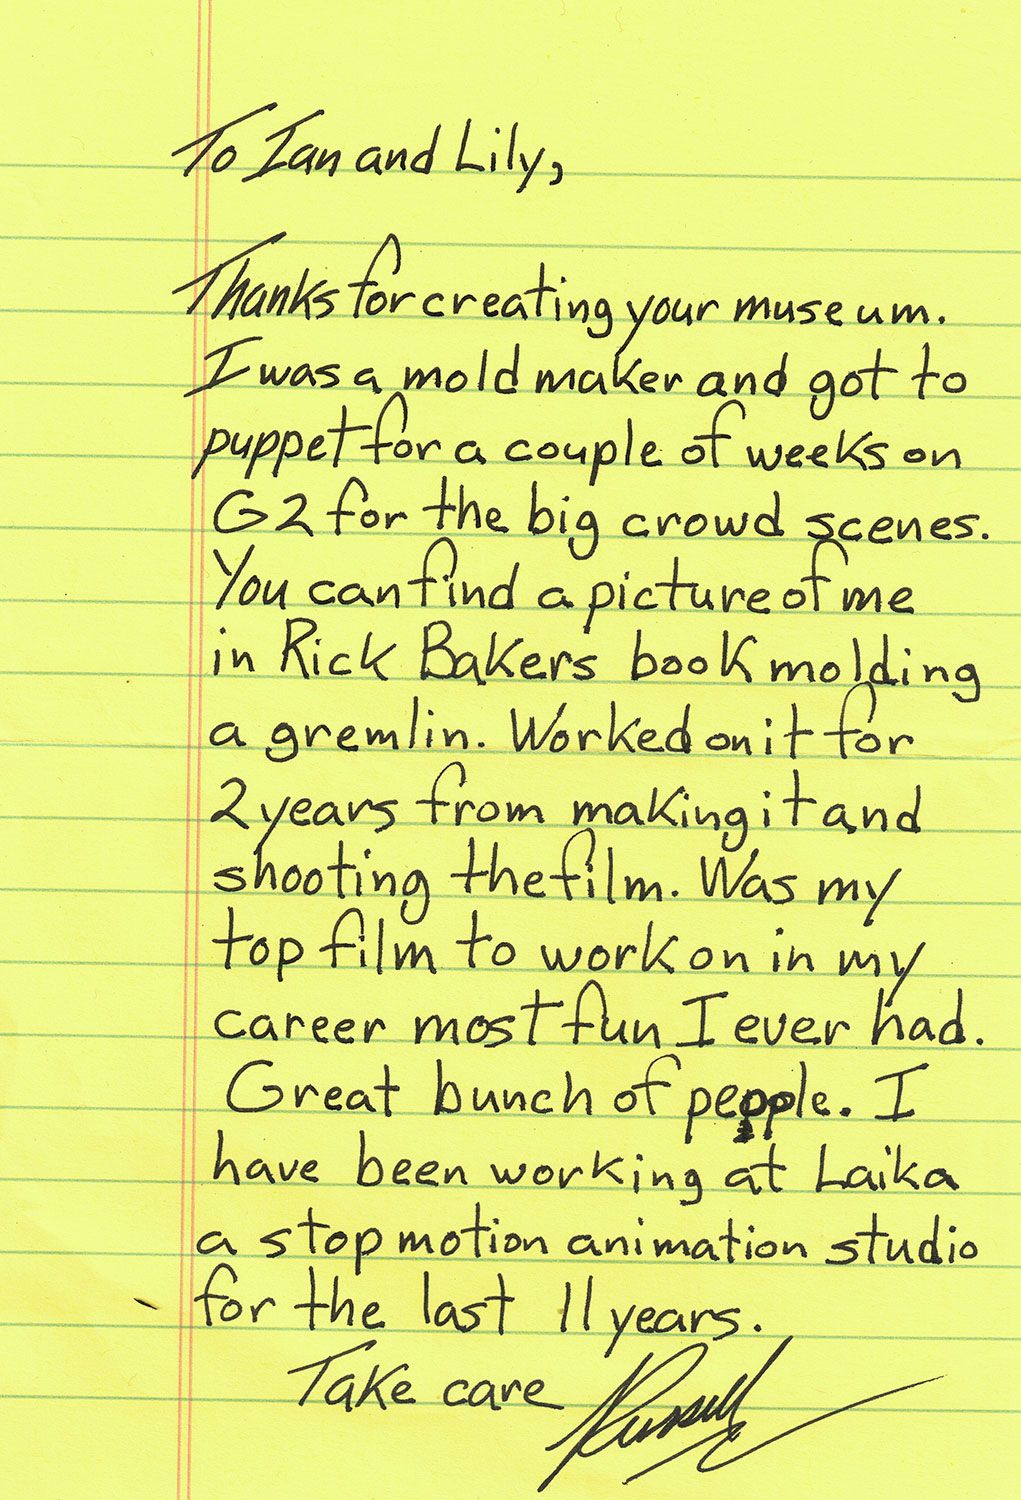 To Ian and Lily,
Thanks for creating your museum.
I was a mold maker and got to
puppet for a couple of weeks on
G2 for the big crowd scenes.
You can find a picture of me
in Rick Bakers book molding
a gremlin. Worked on it for
2 years from making it and
shooting the film. Was my
top film to work on in my
career most fun I ever had.
Great bunch of people. I
have been working at Laika
a stop motion animation studio
for the last 11 years.
Take care Russell